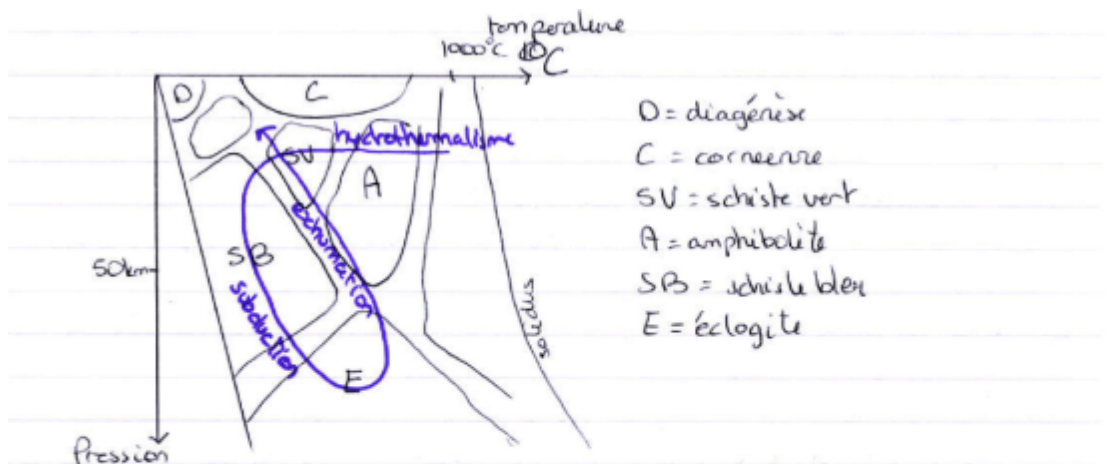 temperature
1000°C °C
D C
hydrothermalisme
SV
A
exhumation
SB
50km
subduction
solidus
E
Pression
D = diagénèse
C = cornéenne
SV = schiste vert
A = amphibolite
SB = schiste bleu
E = éclogite